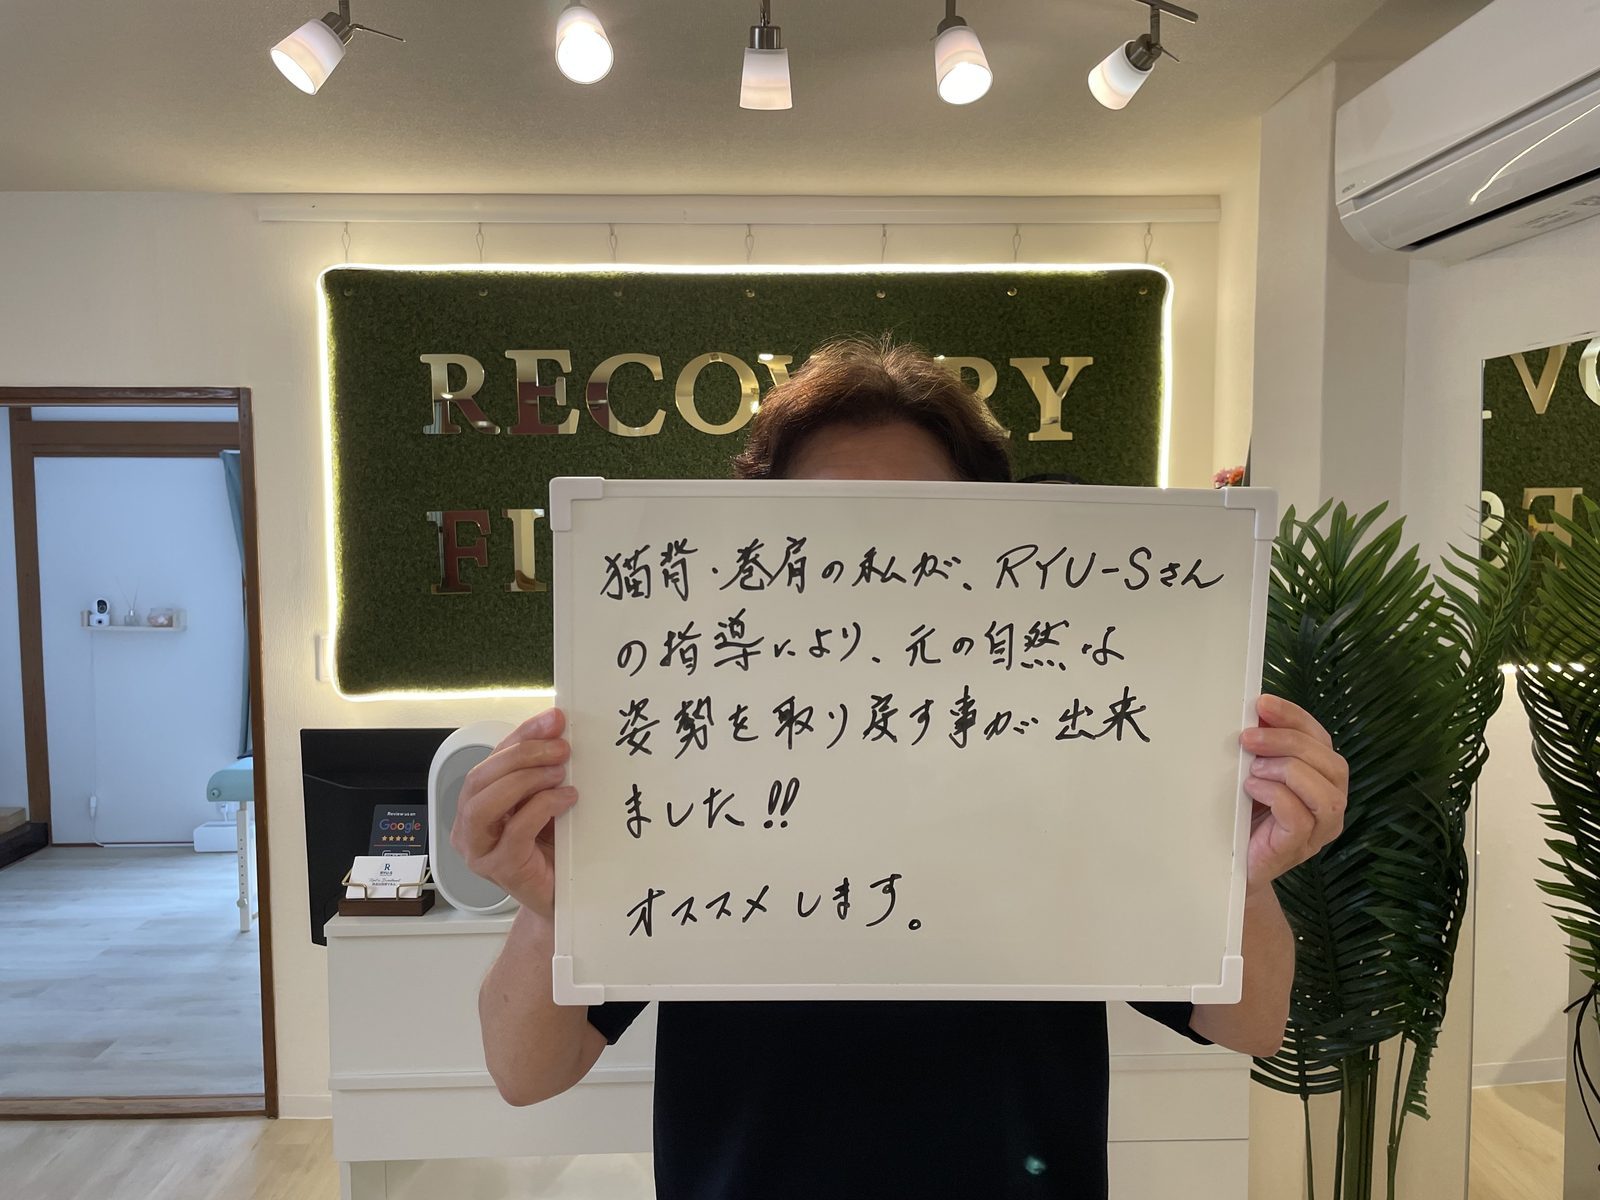 RECOV RY
FI
猫背・巻肩の私が、RYU-Sさん
の指導により、元の自然な
姿勢を取り戻す事が出来
ました!!
オススメします。
Review us on
Google
R
RYU-S
HITACHI